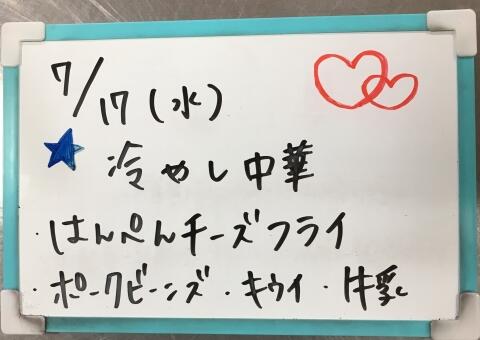 7/17(水)
冷やし中華
・はんぺんチーズフライ
・ポークビーンズ・キウイ・牛乳